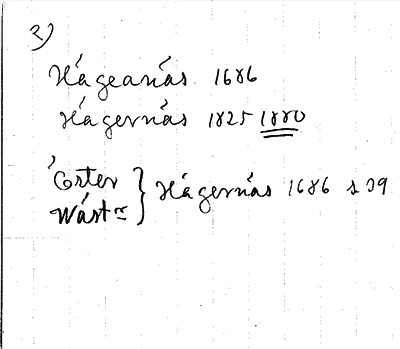 2)
Hágernás 1686
Hágernás 1825 1880
Öster
Wäst } Hágernás 1686 s 39